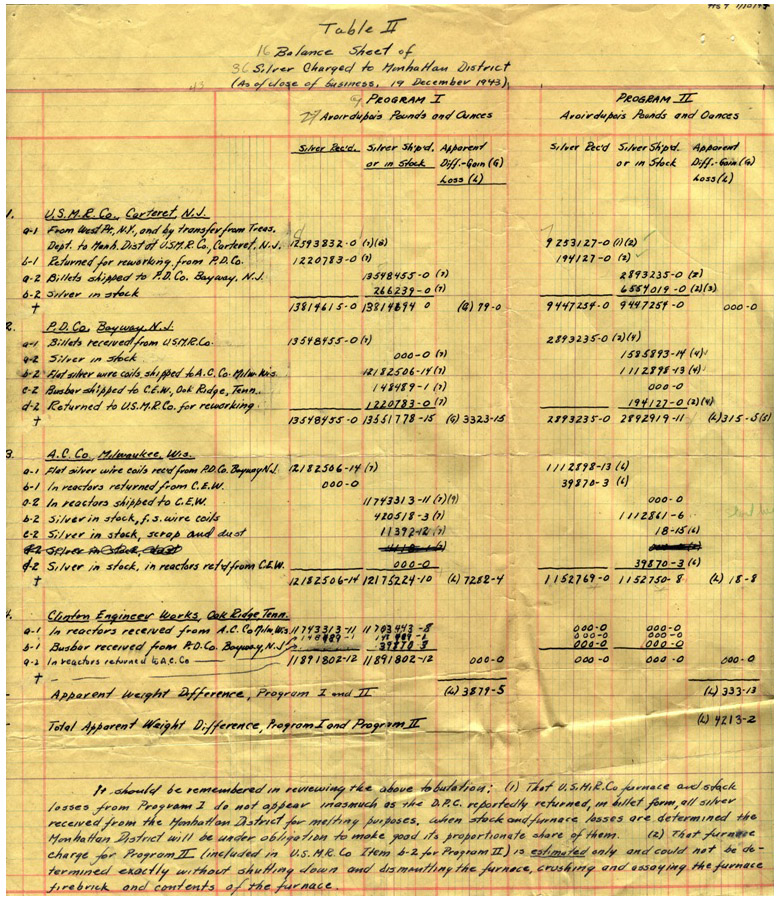 Table II
16 Balance Sheet of
36 Silver Charged to Manhattan District
(As of close of business, 19 December 1943)
PROGRAM I PROGRAM II
27 Avoirdupois Pounds and Ounces Avoirdupois Pounds and Ounces
Silver Rec'd. Silver Ship'd. Apparent Silver Rec'd Silver Ship'd. Apparent
or in Stock Diff.-Gain (G) or in Stock Diff.-Gain (G)
Loss (L) Loss (L)
1. U.S.M.R. Co., Carteret, N.J.
a-1 From West Pt., N.Y., and by transfer from Treas.
Dept. to Manh. Dist at U.S.M.R. Co, Carteret, N.J. 12593832-0 (7)(8) 9253127-0 (1)(2)
b-1 Returned for reworking from P.D.Co. 1220783-0 (7) 194127-0 (2)
a-2 Billets shipped to P.D.Co. Bayway, N.J. 13548455-0 (7) 2893235-0 (2)
b-2 Silver in stock 266239-0 (7) 6554019-0 (2)(3)
† 13814615-0 13814694-0 (G) 79-0 9447254-0 9447254-0 000-0
2. P.D.Co, Bayway N.J.
a-1 Billets received from U.S.M.R.Co. 13548455-0 (7) 2893235-0 (2)(4)
a-2 Silver in stock 000-0 (7) 1585893-14 (4)
b-2 Flat silver wire coils, shipped to A.C. Co. Milw. Wis 12182506-14 (7) 1112898-13 (4)
c-2 Busbar shipped to C.E.W., Oak Ridge, Tenn. 148489-1 (7) 000-0
d-2 Returned to U.S.M.R.Co. for reworking 1220783-0 (7) 194127-0 (2)(4)
† 13548455-0 13551778-15 (G) 3323-15 2893235-0 2892919-11 (L) 315-5 (5)
3 A.C. Co, Milwaukee, Wis.
a-1 Flat silver wire coils rec'd from P.D.Co. Bayway N.J. 12182506-14 (7) 1112898-13 (6)
b-1 In reactors returned from C.E.W. 000-0 39870-3 (6)
a-2 In reactors shipped to C.E.W. 11743313-11 (7)(9) 000-0
b-2 Silver in stock, f.s. wire coils 420518-3 (7) 1112861-6
c-2 Silver in stock, scrap and dust 11392-12 (7) 18-15 (6)
d-2 Silver in stock, in reactors ret'd from C.E.W. 000-0 39870-3 (6)
† 12182506-14 12175224-10 (L) 7282-4 1152769-0 1152750-8 (L) 18-8
4. Clinton Engineer Works, Oak Ridge Tenn.
a-1 In reactors received from A.C. Co Milw, Wis 11743313-11 11703443-8 000-0 000-0
b-1 Busbar received from P.D.Co. Bayway, N.J. 000-0 000-0
a-2 In reactors returned to A.C.Co 39870-3 000-0 000-0
† 11891802-12 11891802-12 000-0 000-0 000-0 000-0
- Apparent Weight Difference, Program I and II (L) 3879-5 (L) 333-13
- Total Apparent Weight Difference, Program I and Program II (L) 4213-2
It should be remembered in reviewing the above tabulation: (1) That U.S.M.R.Co furnace and stack
losses from Program I do not appear inasmuch as the D.P.C. reportedly returned, in billet form, all silver
received from the Manhattan District for melting purposes. When stack and furnace losses are determined the
Manhattan District will be under obligation to make good its proportionate share of them. (2) That furnace
charge for Program II (included in U.S.M.R. Co Item b-2 for Program II) is estimated only and could not be de-
termined exactly without shutting down and dismantling the furnace, crushing and assaying the furnace
firebrick and contents of the furnace.